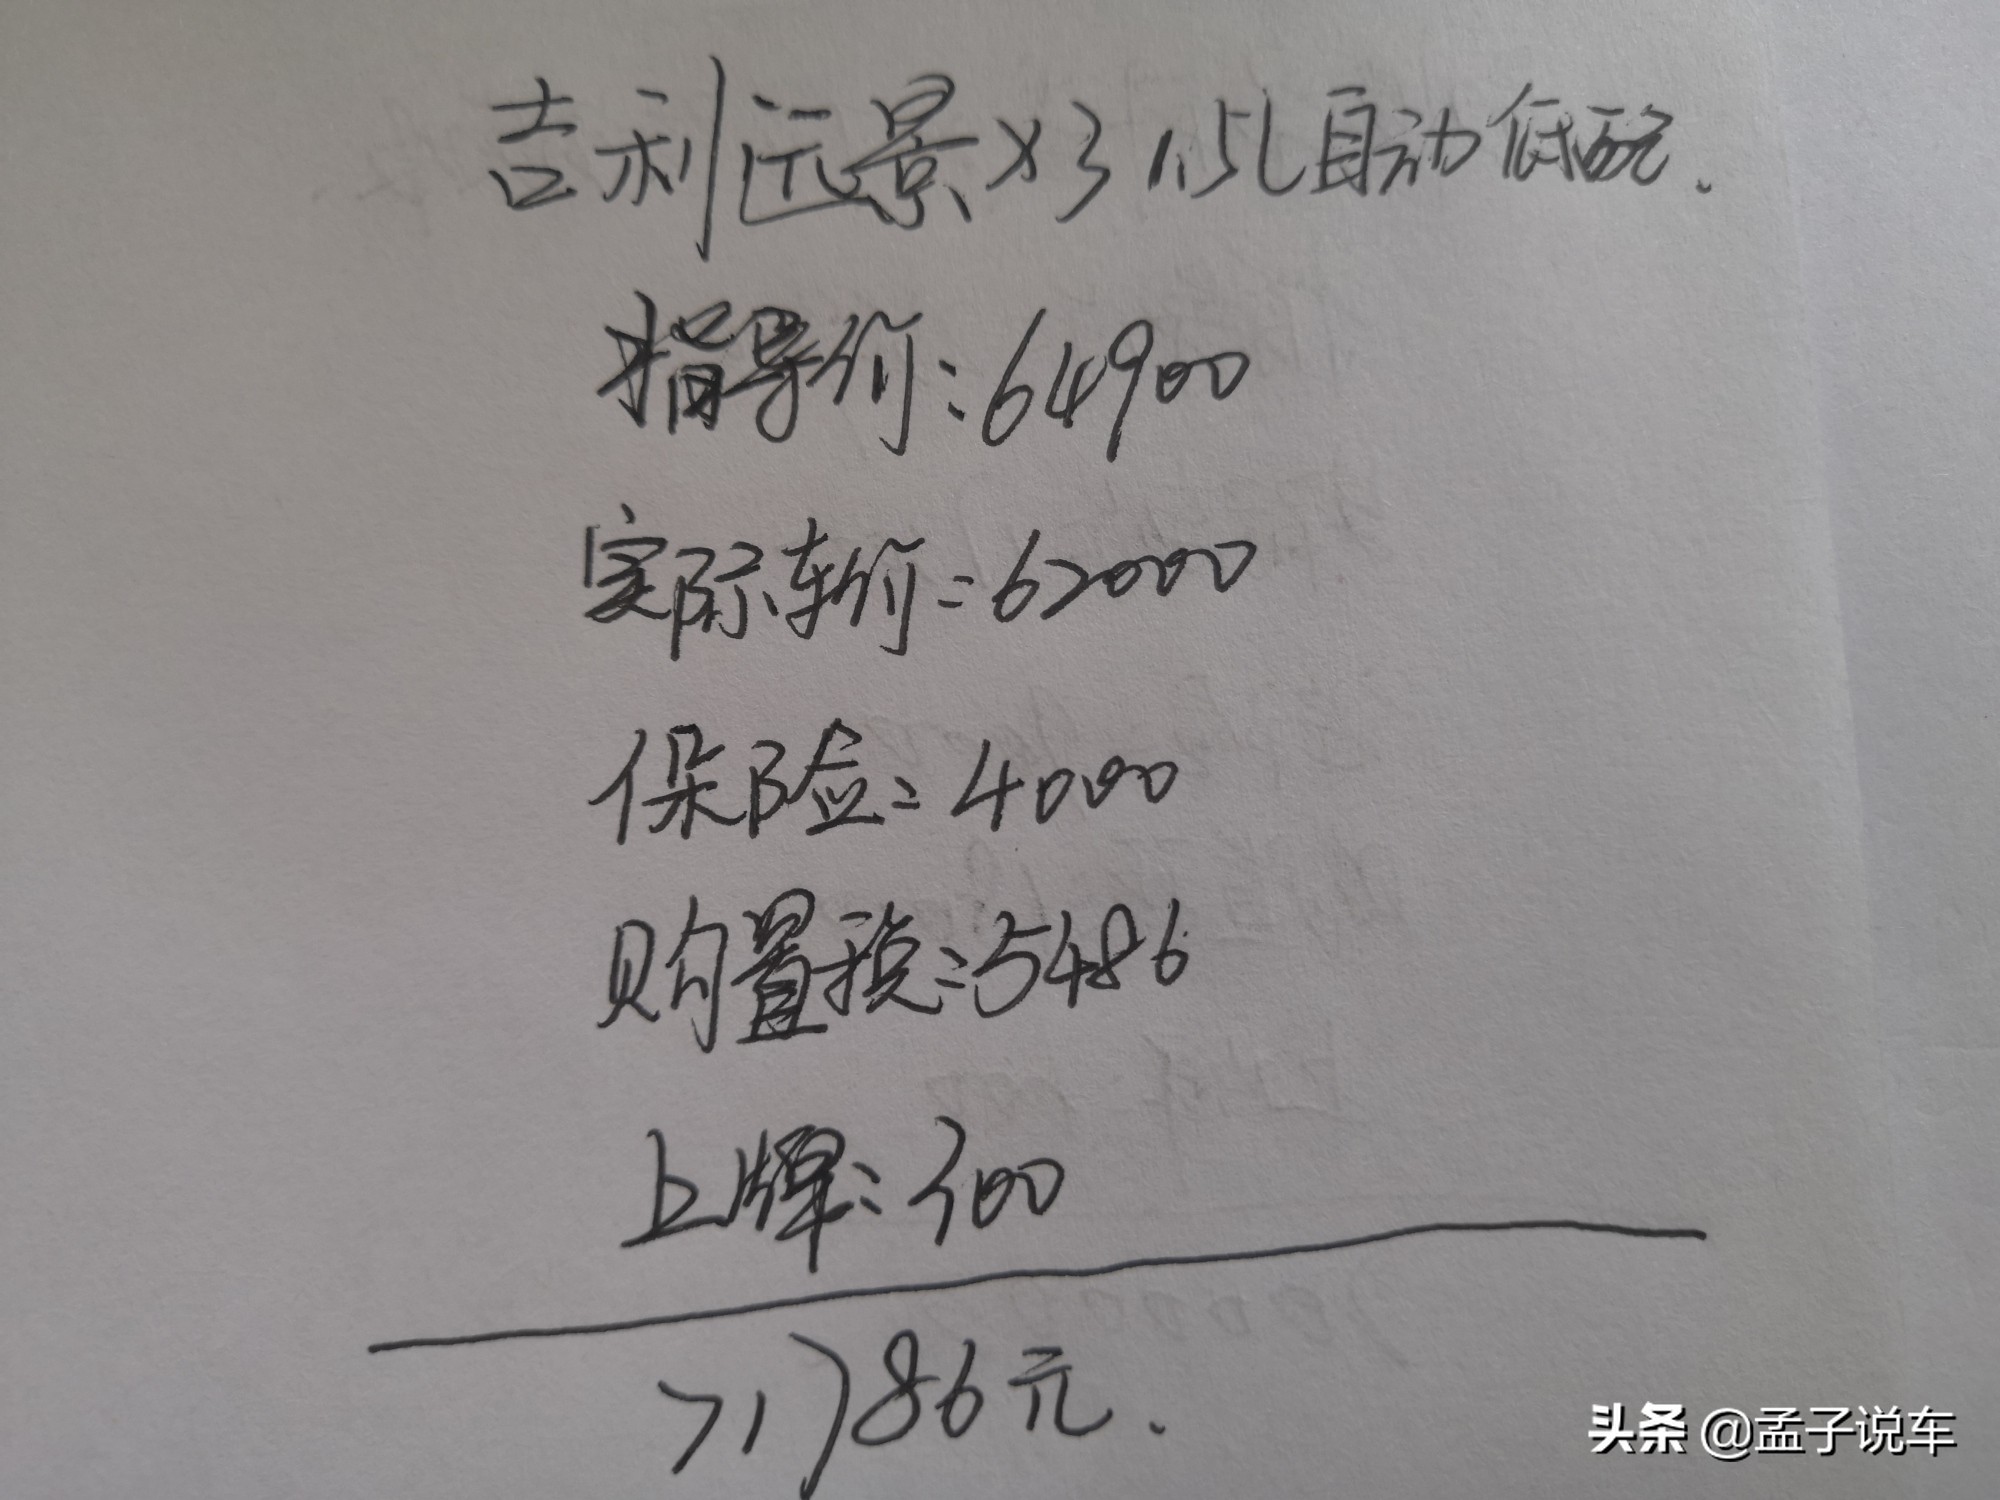 吉利远景X3 1.5L自动低配.
指导价:64900
实际车价:62000
保险:4000
购置税:5486
上牌:300
71786元.
头条 @孟子说车